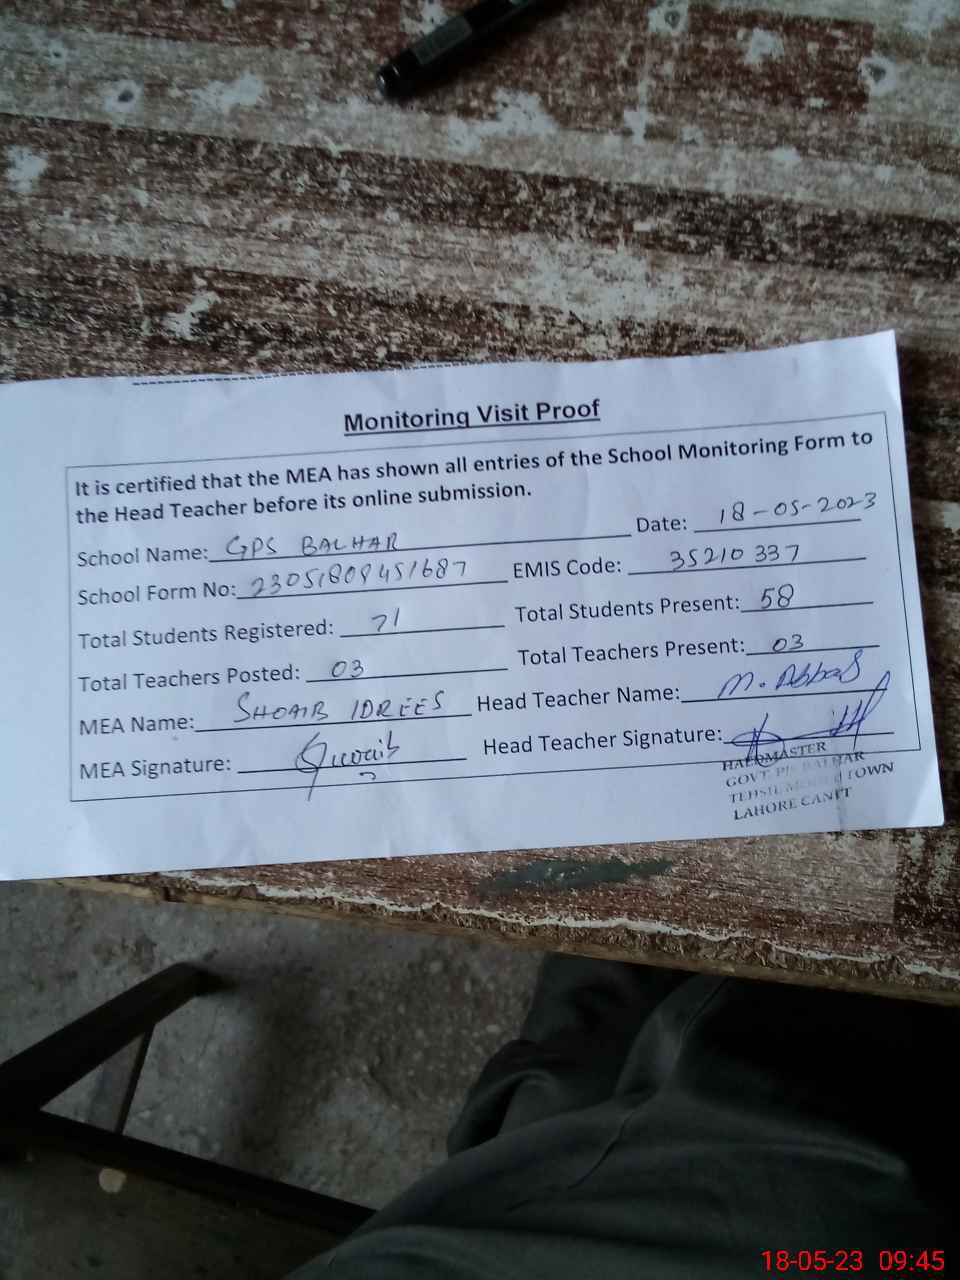 Monitoring Visit Proof
It is certified that the MEA has shown all entries of the School Monitoring Form to
the Head Teacher before its online submission.
School Name: GPS BALHAR Date: 18-05-2023
School Form No: 23051809451687 EMIS Code: 35210337
Total Students Registered: 71 Total Students Present: 58
Total Teachers Posted: 03 Total Teachers Present: 03
MEA Name: SHOAIB IDREES Head Teacher Name: M. Abbas
MEA Signature: Shoaib Head Teacher Signature:
HEADMASTER
GOVT. P/S BALHAR
TEHSIL MODEL TOWN
LAHORE CANTT
18-05-23 09:45